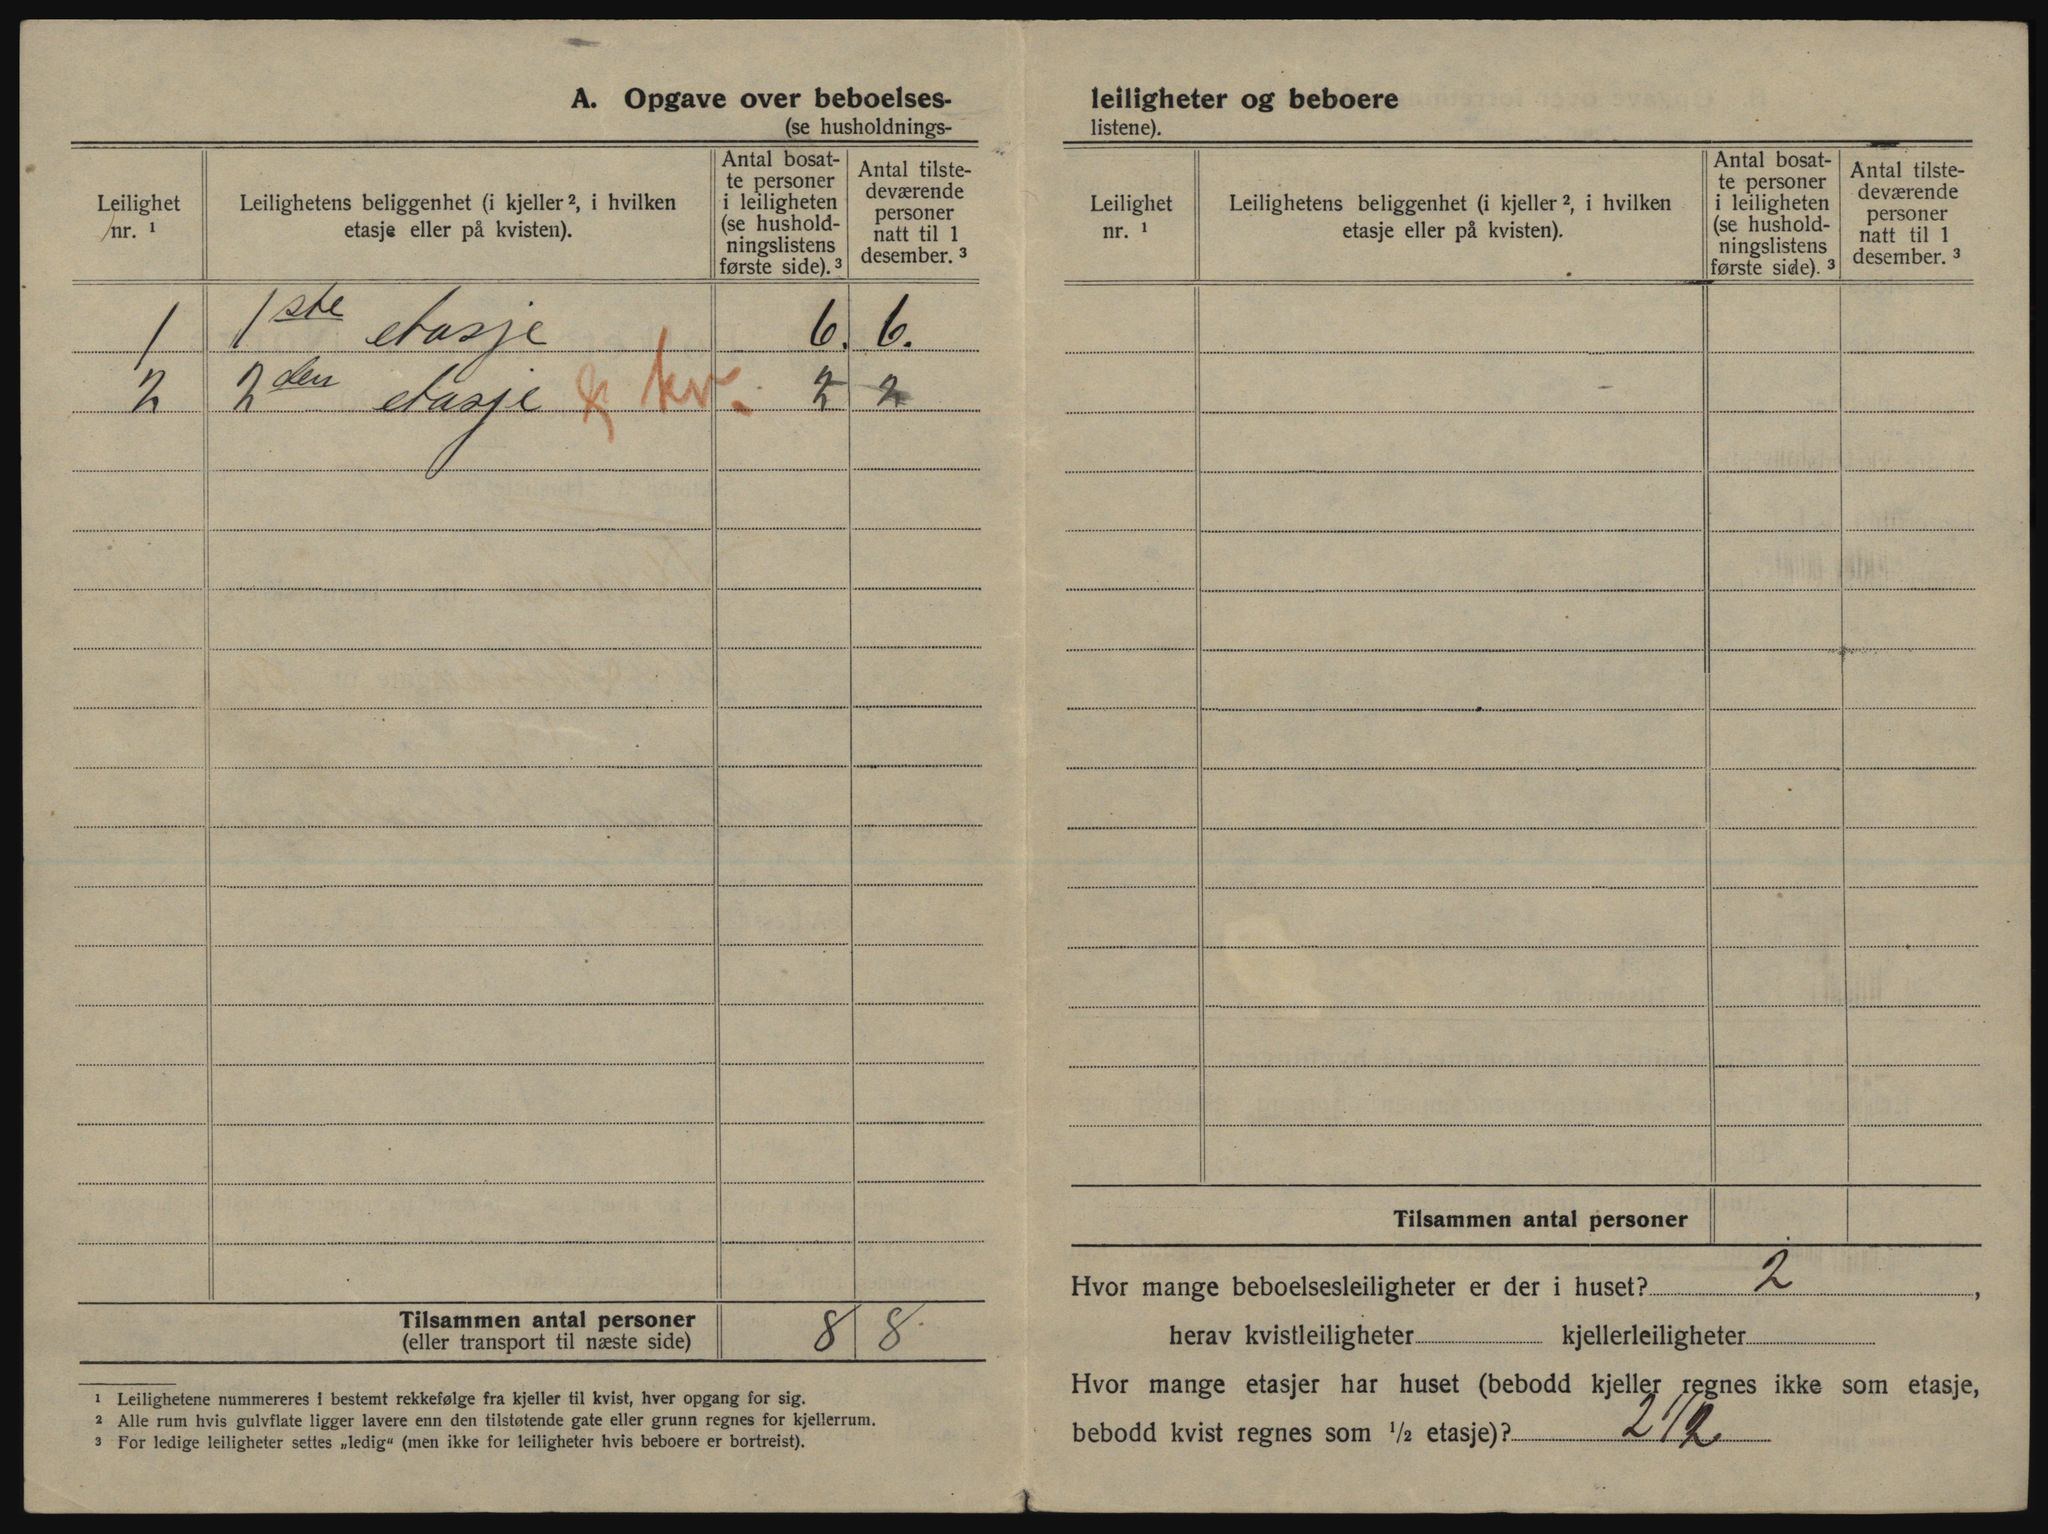 A. Opgave over beboelses-
(se husholdnings-
Leilighet nr. ¹
Leilighetens beliggenhet (i kjeller ², i hvilken
etasje eller på kvisten).
Antal bosat-
te personer
i leiligheten
(se hushold-
ningslistens
første side). ³
Antal tilste-
deværende
personer
natt til 1
desember. ³
1 1ste etasje 6. 6.
2 2den etasje & kv. 2 2
Tilsammen antal personer 8 8
(eller transport til næste side)
¹ Leilighetene nummereres i bestemt rekkefølge fra kjeller til kvist, hver opgang for sig.
² Alle rum hvis gulvflate ligger lavere enn den tilstøtende gate eller grunn regnes for kjellerrum.
³ For ledige leiligheter settes „ledig“ (men ikke for leiligheter hvis beboere er bortreist).
leiligheter og beboere
listene).
Leilighet
nr. ¹
Leilighetens beliggenhet (i kjeller ², i hvilken
etasje eller på kvisten).
Antal bosat-
te personer
i leiligheten
(se hushold-
ningslistens
første side). ³
Antal tilste-
deværende
personer
natt til 1
desember. ³
Tilsammen antal personer
Hvor mange beboelsesleiligheter er der i huset? 2 ,
herav kvistleiligheter kjellerleiligheter
Hvor mange etasjer har huset (bebodd kjeller regnes ikke som etasje,
bebodd kvist regnes som ½ etasje)? 2 1/2